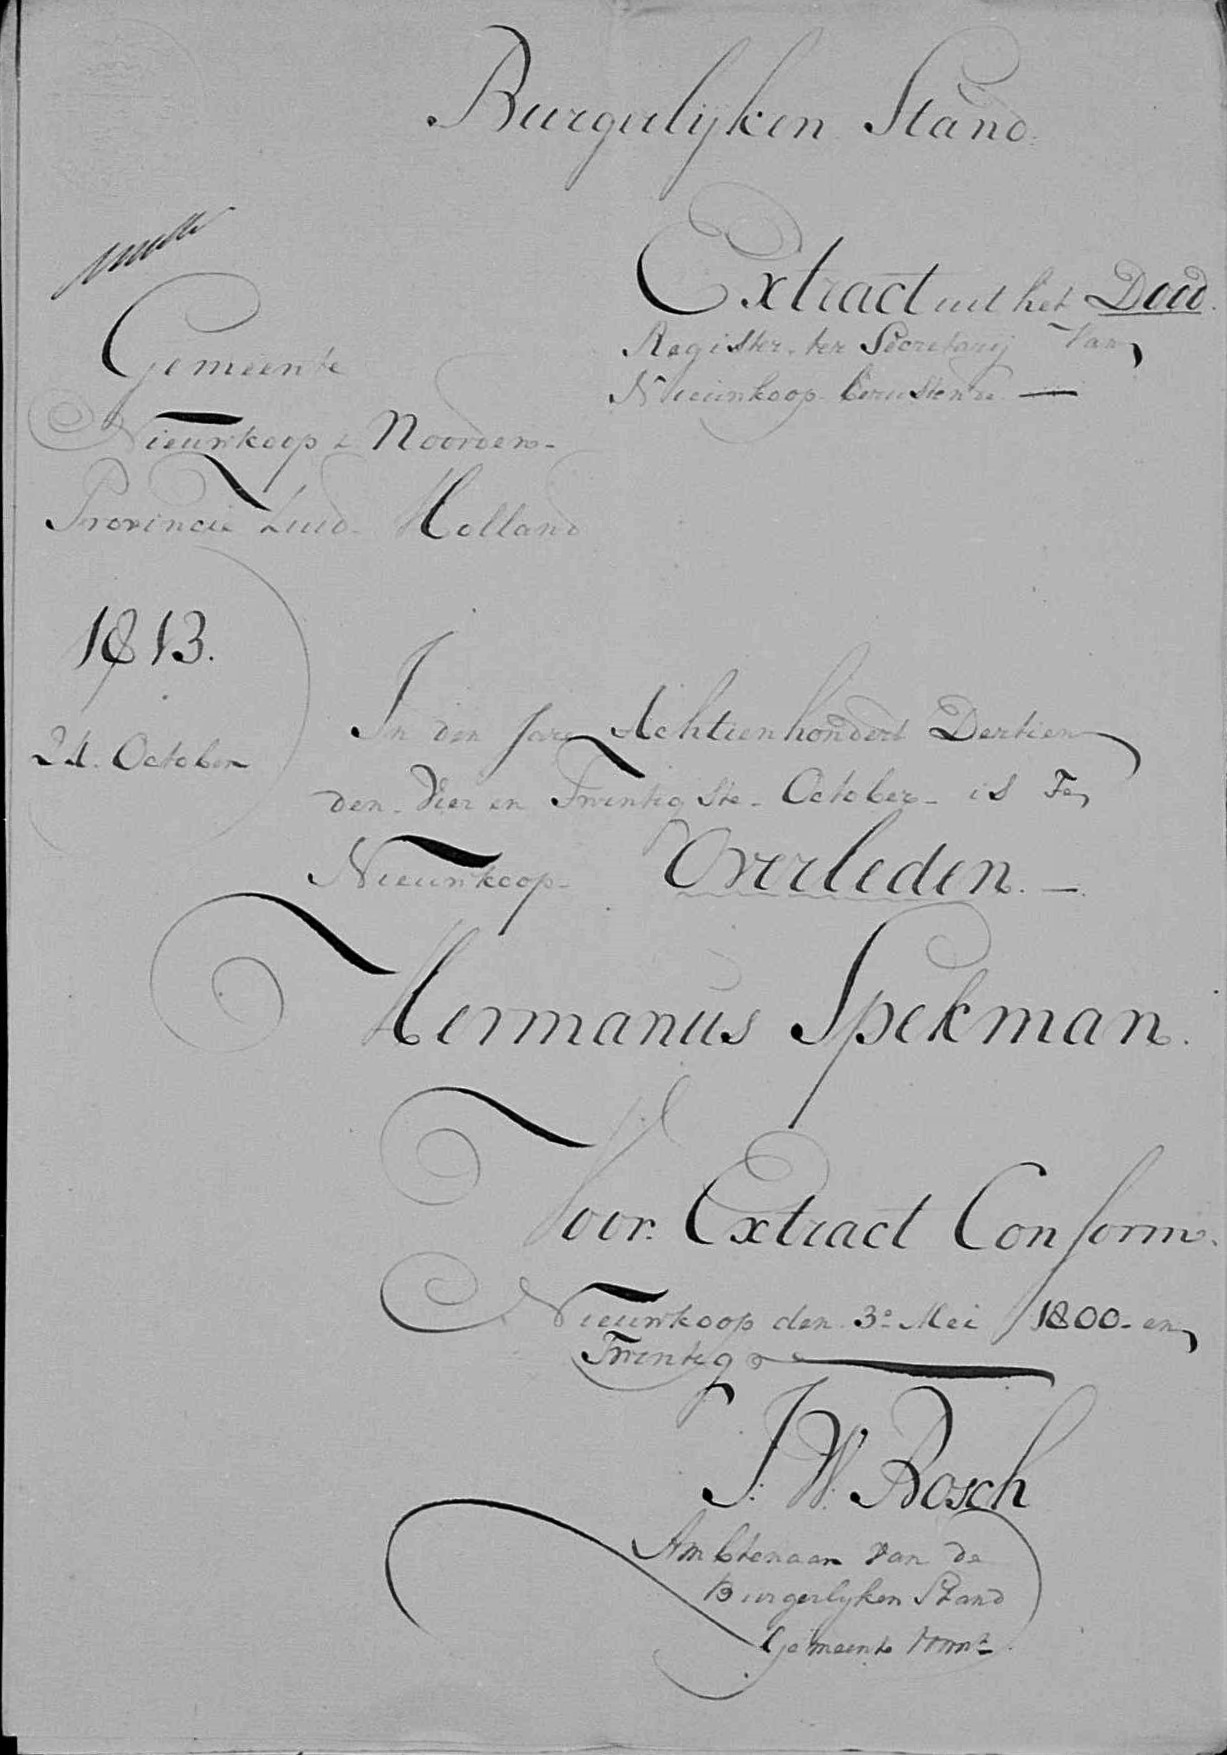 Burgerlijken Stand.
Extract uit het Dood.
Register ter Secretarij Van
Nieuwkoop berustende —
Gemeente
Nieuwkoop & Noorden-
Provincie Zuid-Holland
1813.
24. October
In den Jare Achtienhondert Dertien
den Vier en Twintigste October is Te
Nieuwkoop Overleden. —
Hermanus Spekman.
Voor Extract Conform.
Nieuwkoop den 3e Mei 1800- en
Twintig
J: W: Bosch
Ambtenaar van de
Burgerlyken Stand
Gemeente